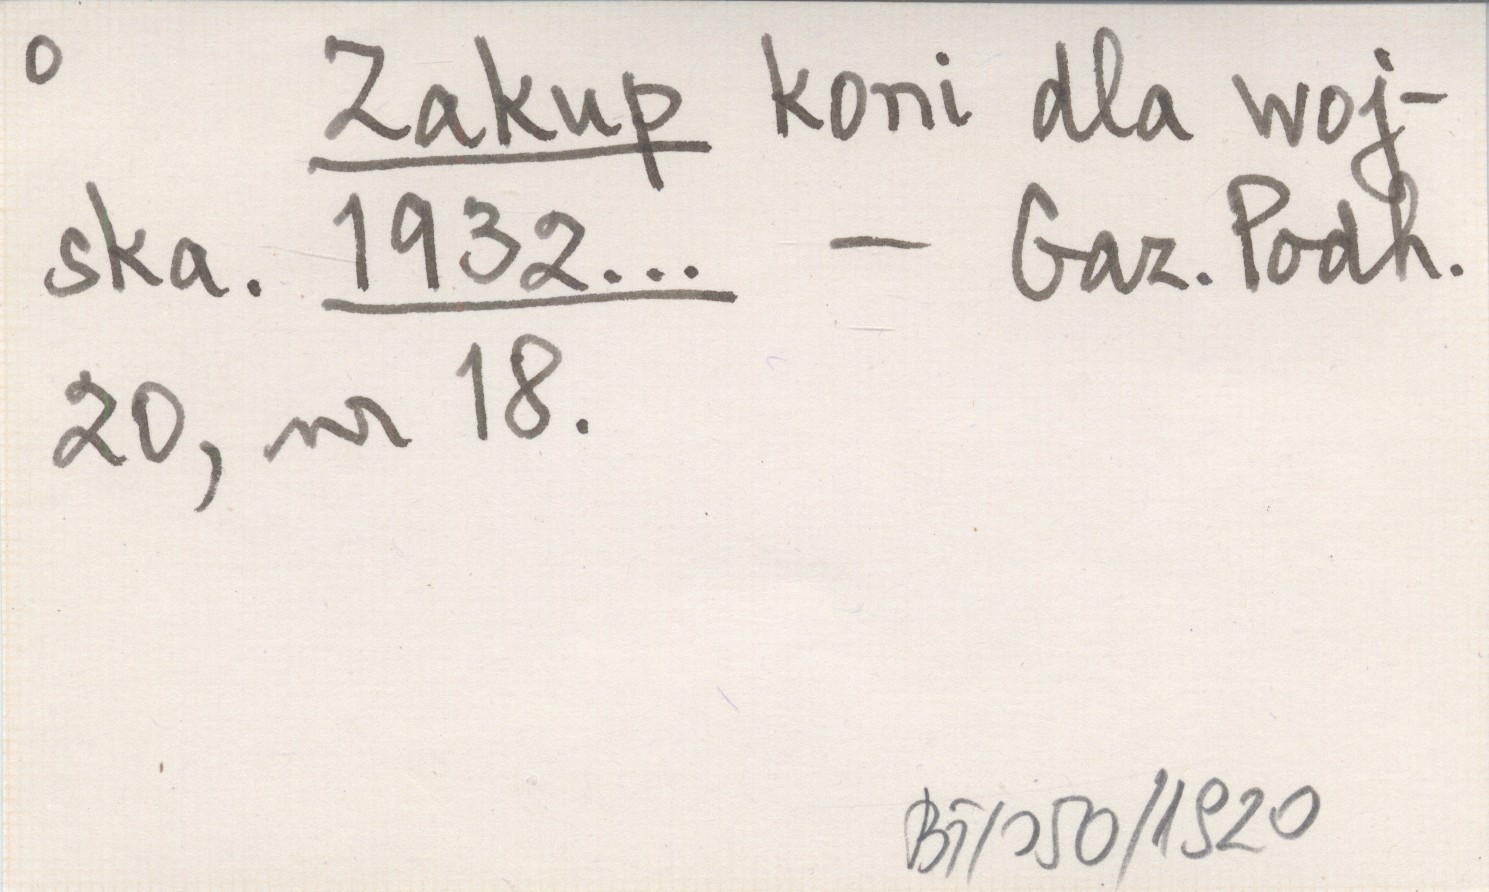 o Zakup koni dla woj-
ska. 1932... — Gaz. Podh.
20, nr 18.
BT/350/1920